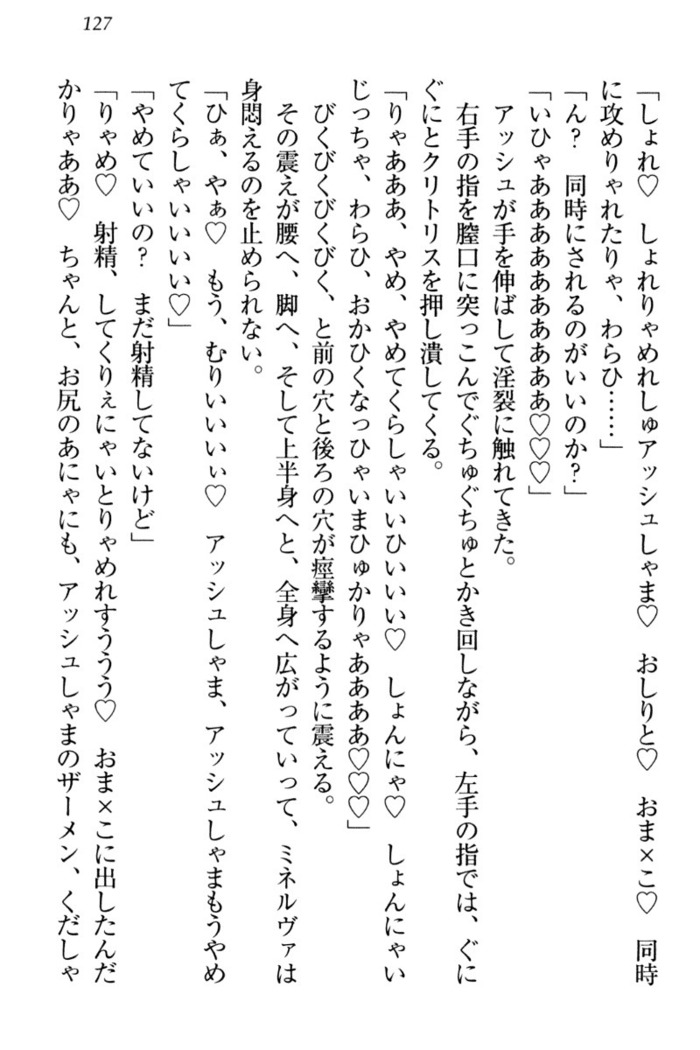 127
「しょれ♡　しょれりゃめれしゅアッシュしゃま♡　おしりと♡　おま×こ♡　同時
に攻めりゃれたりゃ、わらひ……」
「ん？　同時にされるのがいいのか？」
「いひゃあああああああああああ♡♡♡」
　アッシュが手を伸ばして淫裂に触れてきた。
　右手の指を膣口に突っこんでぐちゅぐちゅとかき回しながら、左手の指では、ぐに
ぐにとクリトリスを押し潰してくる。
「りゃあああ、やめ、やめてくらしゃいいひいいい♡　しょんにゃ♡　しょんにゃい
じっちゃ、わらひ、おかひくなっひゃいまひゅかりゃああああ♡♡♡」
　びくびくびくびく、と前の穴と後ろの穴が痙攣するように震える。
　その震えが腰へ、脚へ、そして上半身へと、全身へ広がっていって、ミネルヴァは
身悶えるのを止められない。
「ひぁ、やぁ♡　もう、むりいいいぃ♡　アッシュしゃま、アッシュしゃまもうやめ
てくらしゃいいいい♡」
「やめていいの？　まだ射精してないけど」
「りゃめ♡　射精、してくりぇにゃいとりゃめれすううう♡　おま×こに出したんだ
かりゃああ♡　ちゃんと、お尻のあにゃにも、アッシュしゃまのザーメン、くだしゃ